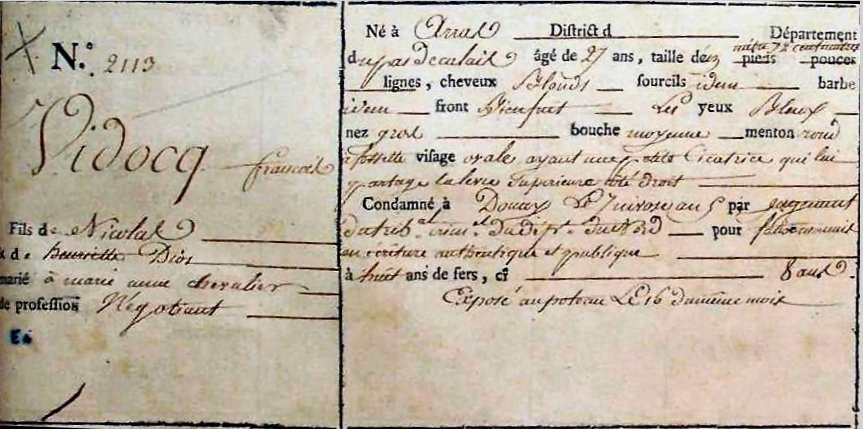 N.o 2113
Vidocq
francois
Fils de Nicolas
& de henriette Dion
marié à marie anne chevalier
de profession Négotiant
Né à Arras District d Département
du pas de calais âgé de 27 ans, taille de mètre 72 centimètres pieds pouces
lignes, cheveux Blonds sourcils idem barbe
idem front Bienfait Les yeux Bleux
nez gros bouche moyenne menton rond
à fossette visage ovale ayant une petite Cicatrice qui lui
partage la levre Superieure côté droit
Condamné à Douay Le 7 nivose an 5 par jugement
du trib.al crim.el du dép.t du Nord pour faux commis
en écriture authentique et publique
à huit ans de fers, ci 8 ans
Exposé au poteau Le 16 du même mois